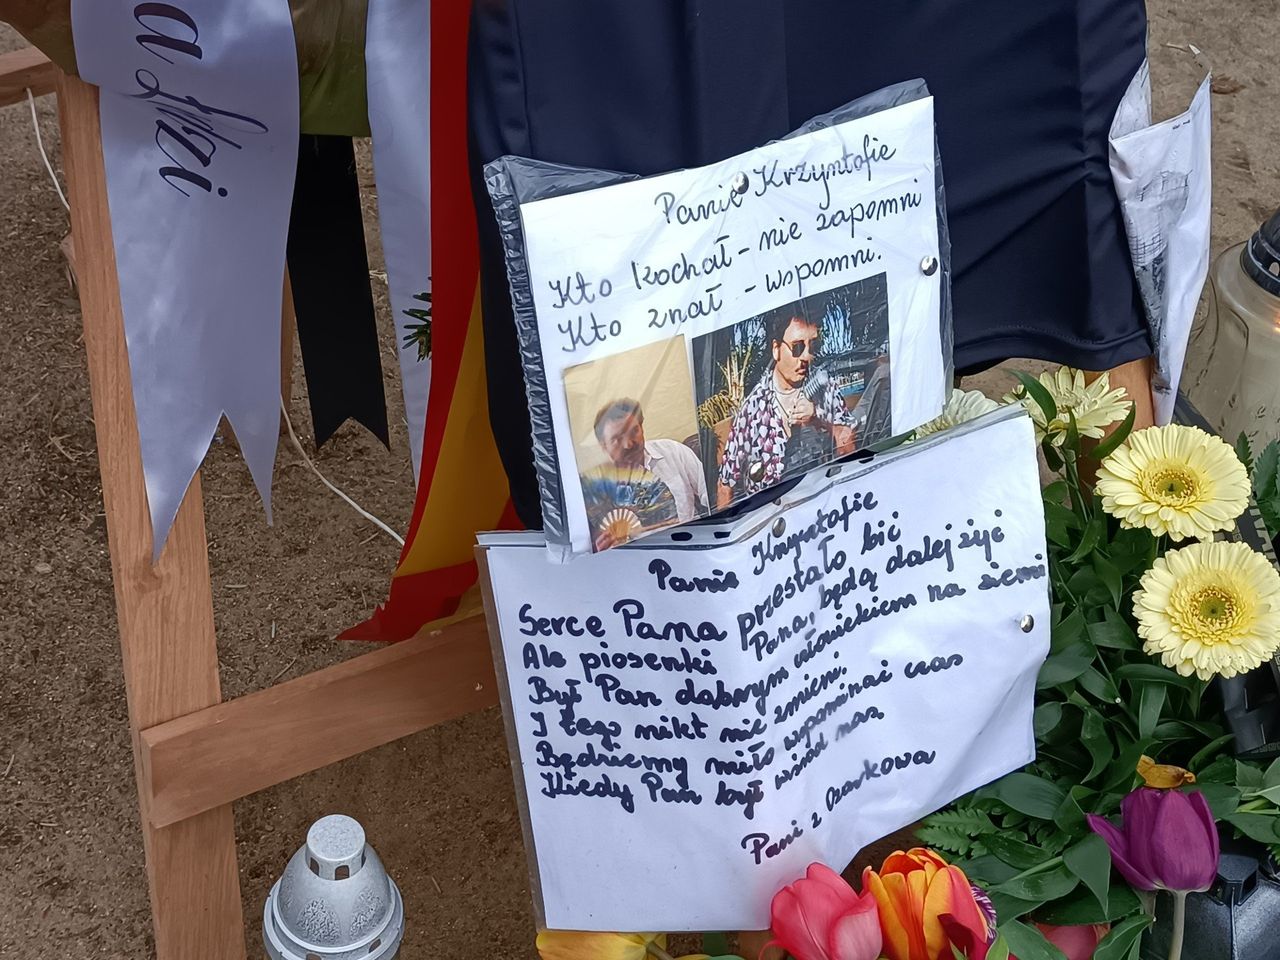 a
Izi
Panie Krzysztofie
Kto kochał - nie zapomni
Kto znał - wspomni.
Panie Krzysztofie
Serce Pana przestało bić
Ale piosenki Pana, będą dalej żyć
Był Pan dobrym człowiekiem na ziemi
I tego nikt nie zmieni.
Będziemy miło wspominać czas
Kiedy Pan był wśród nas
Pani z Ozorkowa